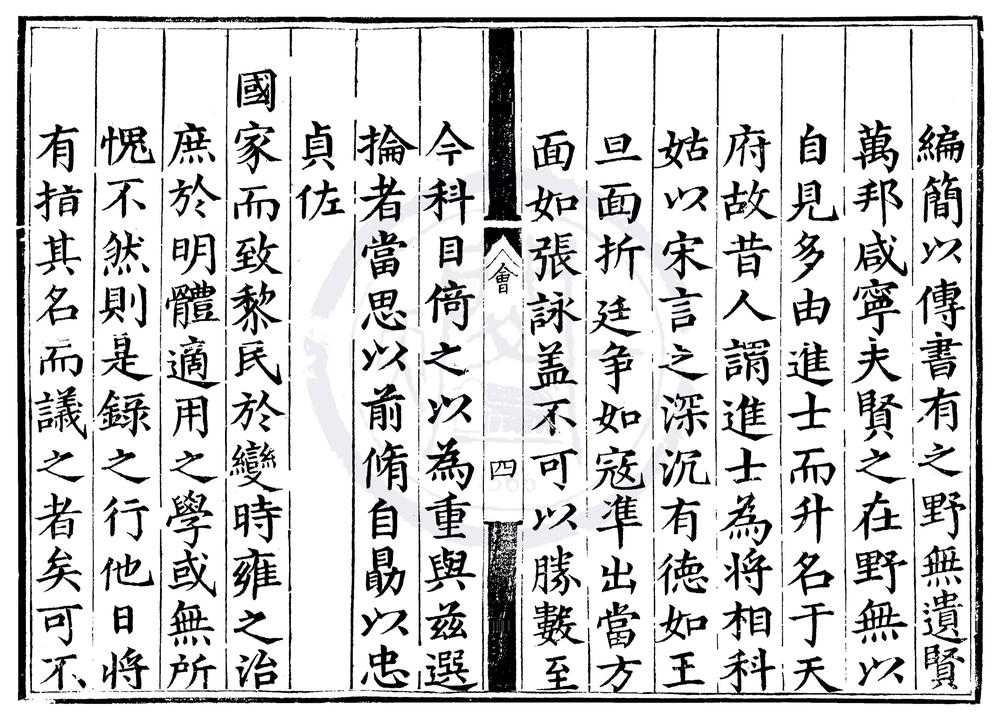 編簡以傳書有之野無遺賢
萬邦咸寧夫賢之在野無以
自見多由進士而升名于天
府故昔人謂進士為将相科
姑以宋言之深沉有徳如王
旦面折廷争如寇凖出當方
面如張詠盖不可以勝數至
會
四
今科目倚之以為重與兹選
掄者當思以前脩自勗以忠
貞佐
國家而致黎民於變時雍之治
庶於明體適用之學或無所
愧不然則是錄之行他日将
有指其名而議之者矣可不